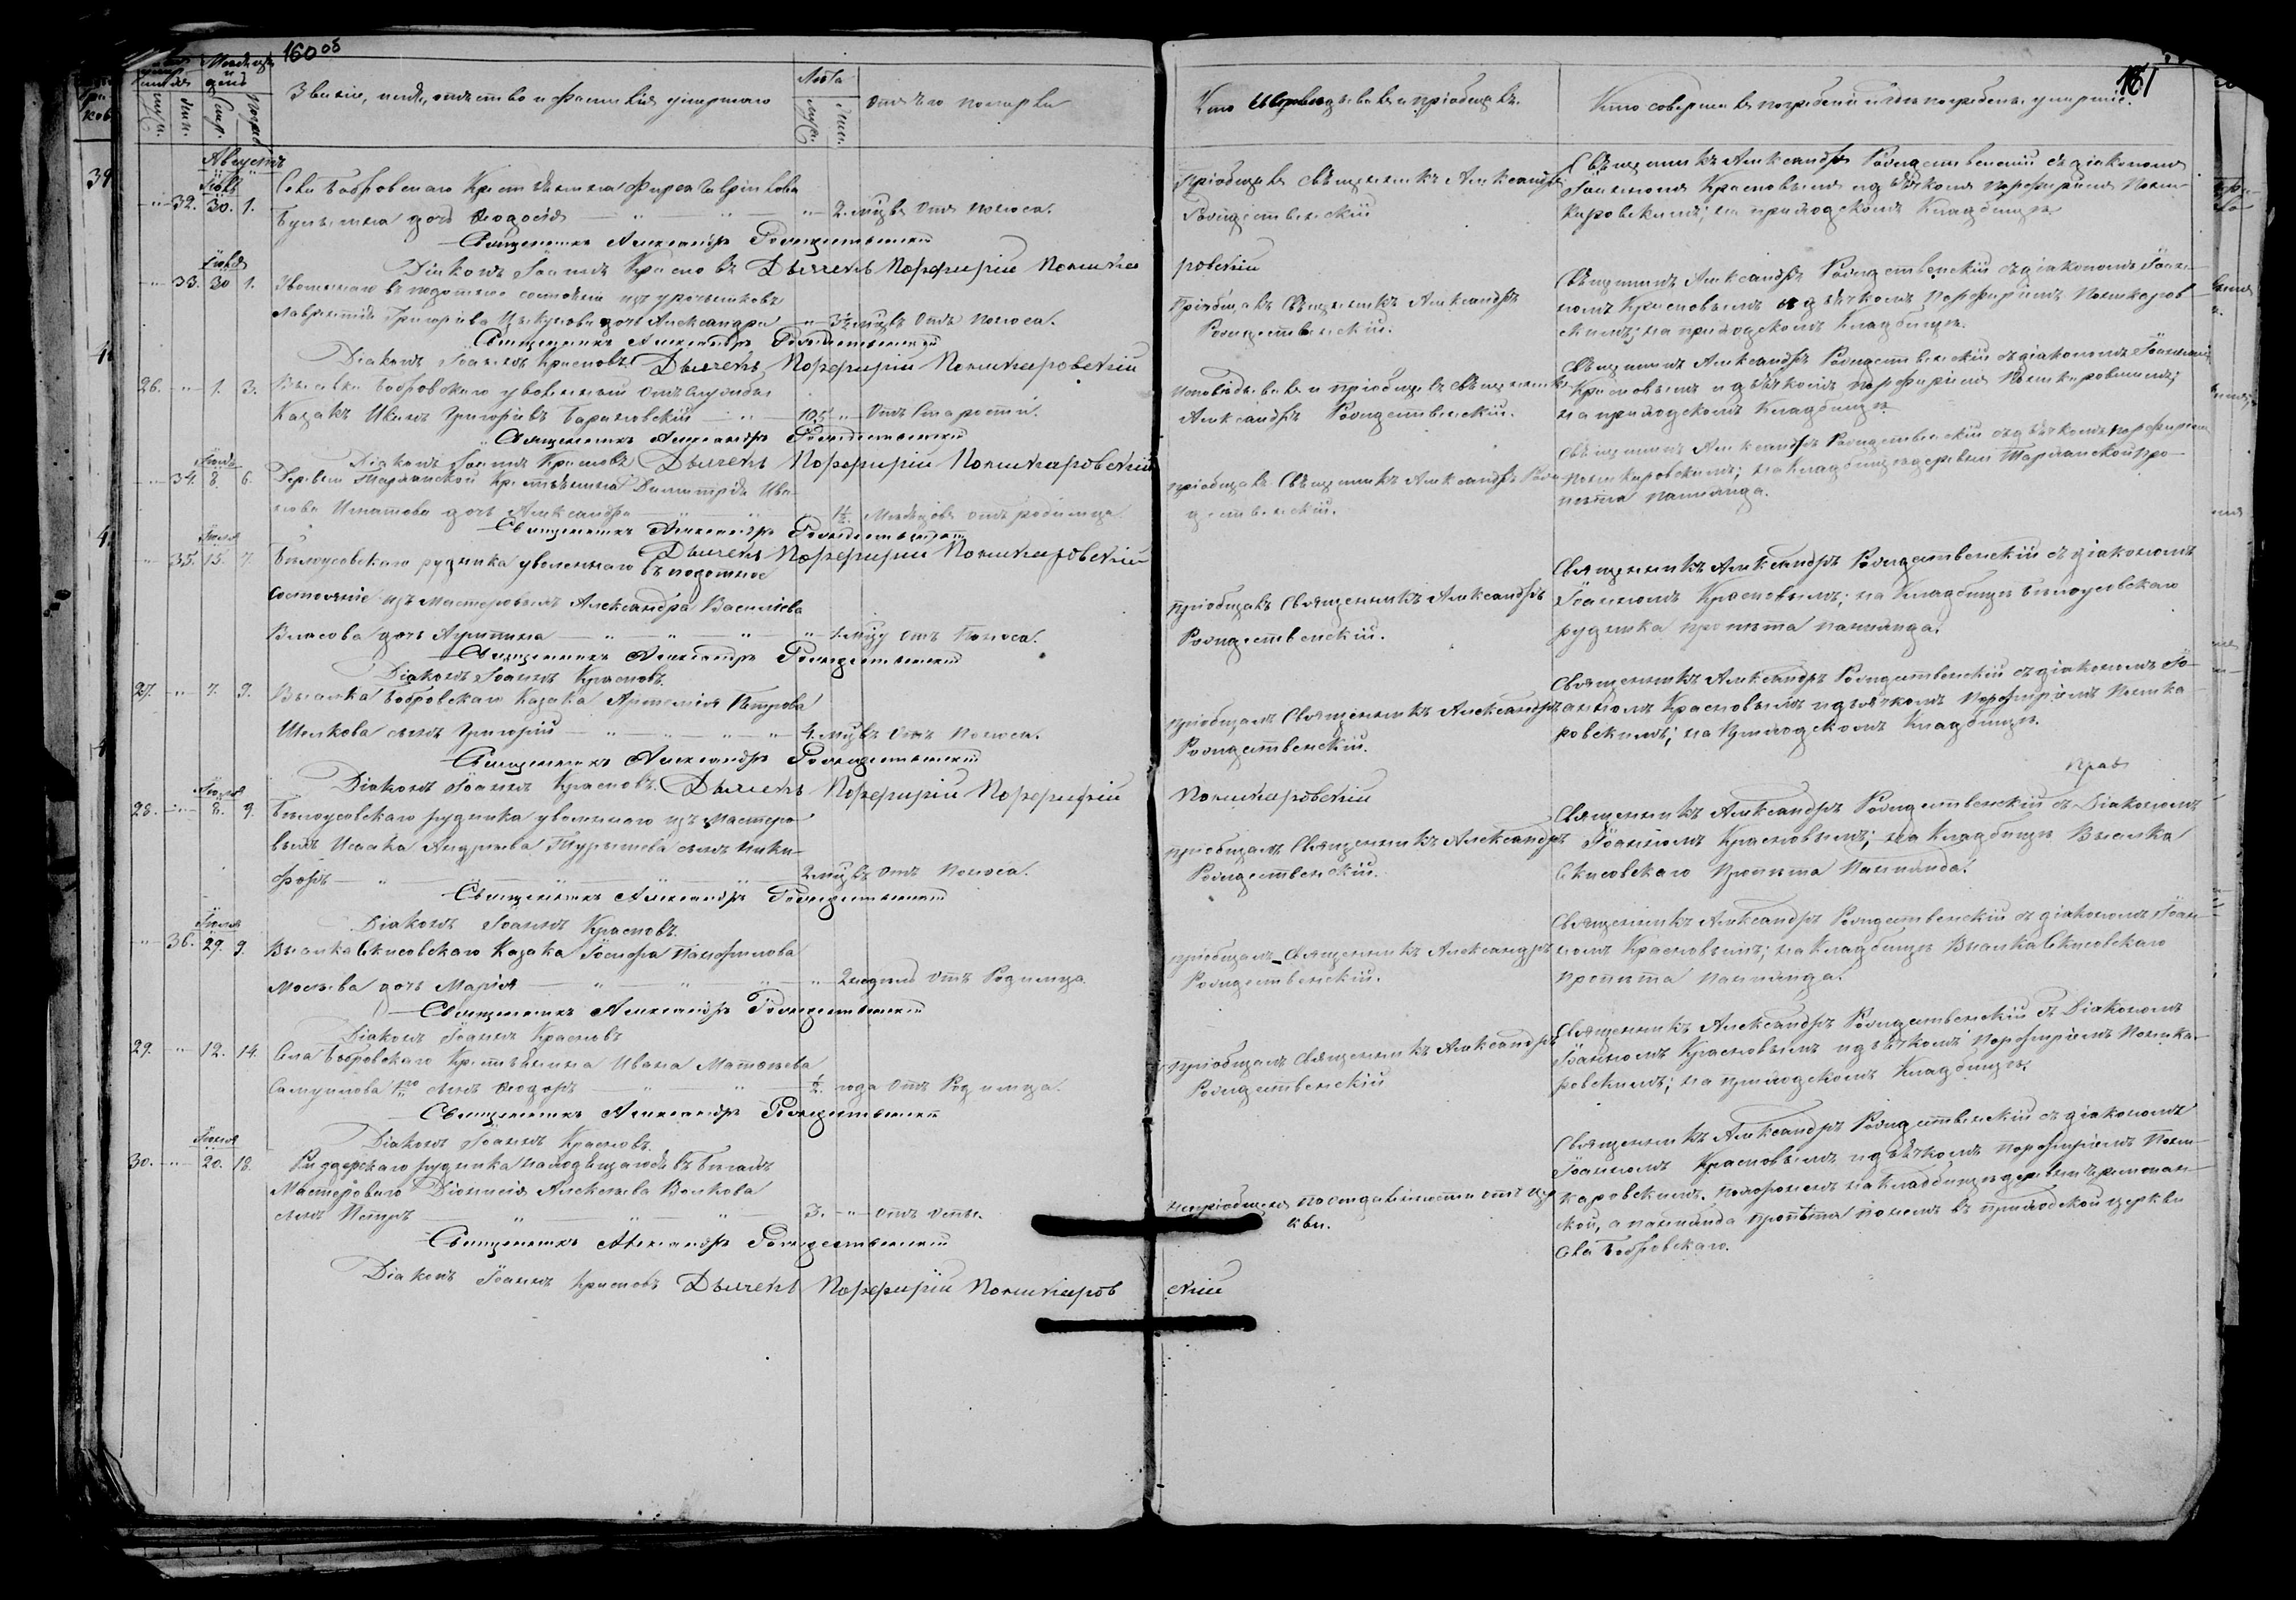 160 об
161
Счетъ умершихъ
Мѣсяцъ и день
муж.
жен.
Смер.
Погреб.
Званіе, имя, отчество и фамилія умершаго
Лѣта
муж.
жен.
Отъ чего померъ
Кто исповѣдывалъ и пріобщалъ.
Кто совершалъ погребеніе и гдѣ погребены умершіе.
Августъ
Іюля
32. 30. 1.
Села Бобровскаго Крестьянина Гаврилова
дочь Ѳеодосія
2 мцвъ Отъ поноса.
Пріобщалъ Священникъ Александръ
Рождественскій
Священникъ Александръ Рождественскій съ діакономъ
Іоанномъ Красновымъ и дьячкомъ Порфиріемъ Поли-
карповскимъ; на приходскомъ Кладбищѣ.
Священникъ Александръ Рождественскій
Діаконъ Іоаннъ Красновъ Дьячекъ Порфирій Поликар
повскій
Іюля
33. 30 1.
въ подотное состояніе изъ урочниковъ
Лаврентія Григорьева дочь Александра
3½ мцвъ Отъ поноса.
Пріобщалъ Священникъ Александръ
Рождественскій.
Священникъ Александръ Рождественскій съ діакономъ Іоан-
номъ Красновымъ и дьячкомъ Порфиріемъ Поликарпов-
скимъ; на приходскомъ Кладбищѣ.
Священникъ Александръ Рождественскій
Діаконъ Іоаннъ Красновъ Дьячекъ Порфирій Поликарповскій
26. 1. 3.
Выселка Бобровскаго уволенный отъ службы
Казакъ Иванъ Григорьевъ
105 Отъ Старости.
Исповѣдывалъ и пріобщалъ Священникъ
Александръ Рождественскій.
Священникъ Александръ Рождественскій съ діакономъ Іоанномъ
Красновымъ и дьячкомъ Порфиріемъ Поликарповскимъ;
на приходскомъ Кладбищѣ.
Священникъ Александръ Рождественскій
Діаконъ Іоаннъ Красновъ Дьячекъ Порфирій Поликарповскій
Іюля
34. 8. 6.
Деревни Тарханской Крестьянина Димитрія Ива-
нова Игнатова дочь Александра
1½ Мѣсяцовъ отъ родимца
Пріобщалъ Священникъ Александръ Рож-
дественскій.
Священникъ Александръ Рождественскій съ дьячкомъ Порфиріемъ
Поликарповскимъ; на Кладбищѣ деревни Тарханской про-
пѣта панихида.
Священникъ Александръ Рождественскій
Дьячекъ Порфирій Поликарповскій
Іюля
35. 15. 7.
Бѣлоусовскаго рудника уволеннаго въ подотное
состояніе изъ мастеровыхъ Александра Васильева
Власова дочь Агриппина
1 мцу Отъ Поноса.
Пріобщалъ Священникъ Александръ
Рождественскій.
Священникъ Александръ Рождественскій съ діакономъ
Іоанномъ Красновымъ; на Кладбищѣ Бѣлоусовскаго
рудника пропѣта панихида.
Священникъ Александръ Рождественскій
Діаконъ Іоаннъ Красновъ.
27. 7. 9.
Выселка Бобровскаго Казака Артемія Петрова
сынъ Григорій
4 мцвъ Отъ поноса.
Пріобщалъ Священникъ Александръ
Рождественскій.
Священникъ Александръ Рождественскій съ діакономъ Іо-
анномъ Красновымъ и дьячкомъ Порфиріемъ Поликар-
повскимъ; на приходскомъ Кладбищѣ.
Священникъ Александръ Рождественскій
Діаконъ Іоаннъ Красновъ. Дьячекъ Порфирій Порфирій
Поликарповскій
Іюля
28. 8. 9.
Бѣлоусовскаго рудника уволеннаго изъ мастеро-
выхъ Исаака Андреева сынъ Ники-
форъ
2 мцвъ Отъ Поноса.
Пріобщалъ Священникъ Александръ
Рождественскій.
Священникъ Александръ Рождественскій съ Діакономъ
Іоанномъ Красновымъ; на Кладбищѣ Выселка
пропѣта Панихида.
Священникъ Александръ Рождественскій
Діаконъ Іоаннъ Красновъ.
Іюля
36. 29. 9.
Выселка Казака Іосифа Панфилова
дочь Марія
2 недѣль Отъ Родимца.
Пріобщалъ Священникъ Александръ
Рождественскій.
Священникъ Александръ Рождественскій съ діакономъ Іоан-
номъ Красновымъ; на Кладбищѣ Выселка
пропѣта панихида.
Священникъ Александръ Рождественскій
Діаконъ Іоаннъ Красновъ
29. 12. 14.
Села Бобровскаго Крестьянина Ивана Матвѣева
Самуилова 1го сынъ Ѳеодоръ
½ года Отъ Родимца.
Пріобщалъ Священникъ Александръ
Рождественскій
Священникъ Александръ Рождественскій съ Діакономъ
Іоанномъ Красновымъ и дьячкомъ Порфиріемъ Поликар-
повскимъ; на приходскомъ Кладбищѣ.
Священникъ Александръ Рождественскій
Діаконъ Іоаннъ Красновъ.
Іюля
30. 20. 18.
Риддерскаго рудника находящагося въ бѣгахъ
Мастероваго Діонисія Алексѣева Волкова
сынъ Петръ
3. Отъ Оспы.
Непріобщенъ по отдаленности отъ цер-
кви.
Священникъ Александръ Рождественскій съ діакономъ
Іоанномъ Красновымъ и дьячкомъ Порфиріемъ Поли-
карповскимъ. похороненъ на Кладбищѣ деревни
ской, а панихида пропѣта по немъ въ приходской церкви
села Бобровскаго.
Священникъ Александръ Рождественскій
Діаконъ Іоаннъ Красновъ Дьячекъ Порфирій Поликарпов
скій